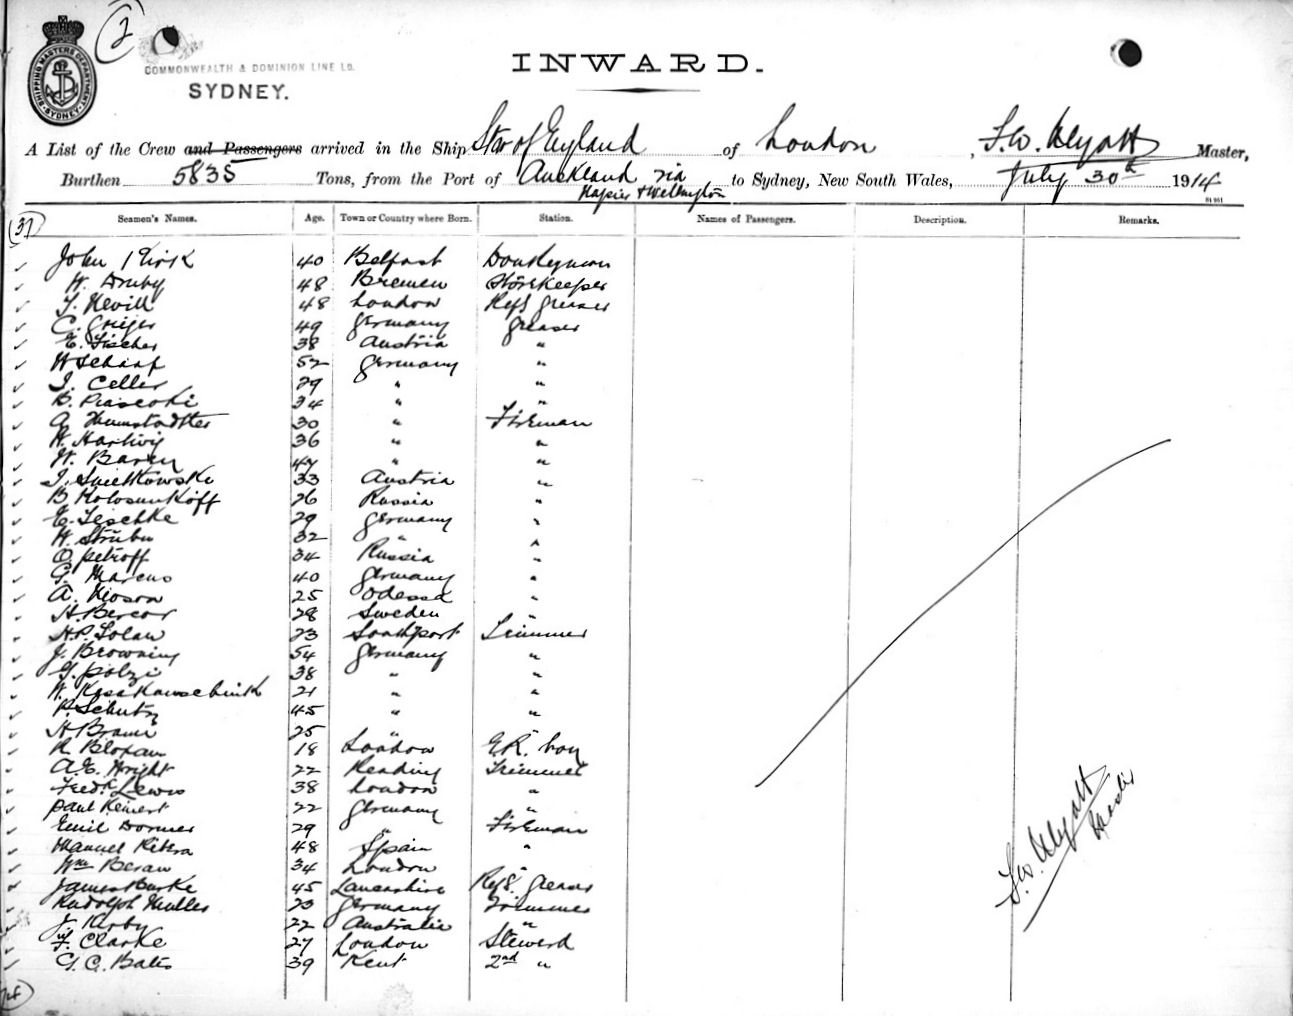 2
SHIPPING MASTERS DEPARTMENT SYDNEY
COMMONWEALTH & DOMINION LINE LD.
SYDNEY.
INWARD.
A List of the Crew and Passengers arrived in the Ship Star of England of London, F. W. Wyatt Master,
Burthen 5835 Tons, from the Port of Auckland via to Sydney, New South Wales, July 30th 1914
Napier & Wellington
Seamen's Names. Age. Town or Country where Born. Station. Names of Passengers. Description. Remarks.
37
John Kirk 40 Belfast Donkeyman
H. 48 Bremen Storekeeper
T. Nevill 48 London Refg greaser
C. 49 Germany greaser
E. Fischer 38 Austria "
W Scharf 52 Germany "
J. Celler 29 " "
B. Piasecki 34 " "
A. Humstadtter 30 " Fireman
H. Hartwig 36 " "
W. 47 " "
J. 33 Austria "
B. 26 Russia "
E. 29 Germany "
H. Strübn 32 " "
O. Petroff 34 Russia "
G. Marcus 40 Germany "
A. 25 Odessa "
H. 28 Sweden "
H.P. 23 Southport Trimmer
J. Browning 54 Germany "
G. 38 " "
W. 21 " "
P. Schutz 45 " "
H 25 " "
R. Bloxam 18 London E.R. boy
A.E. Wright 22 Reading Trimmer
Fredk Lewis 38 London "
Paul Reinert 22 Germany "
Emil Dormer 29 " Fireman
Manuel Ribera 48 Spain "
Wm Beran 34 London "
James Burke 45 Lancashire Refg. greaser
Rudolph Muller 23 Germany Trimmer
J. Kirby 22 Australia "
W. F. Clarke 27 London Steward
G. C. Bates 39 Kent 2nd "
F. W. Wyatt
Master